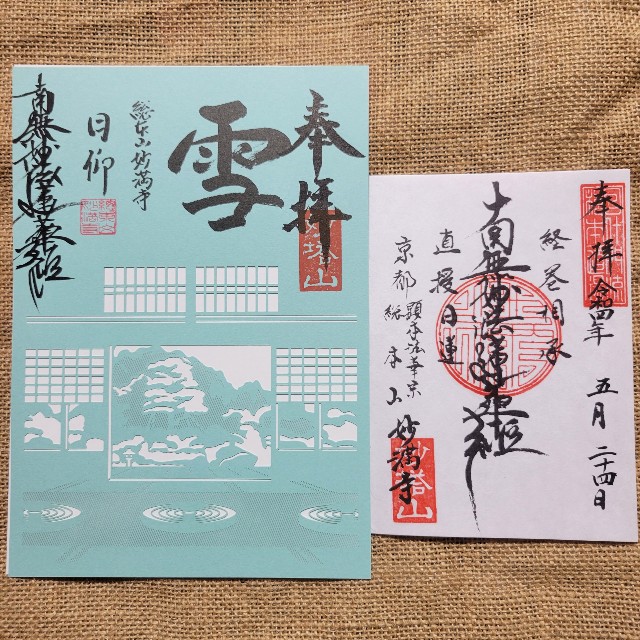 奉拝
雪
総本山妙満寺
日仰
南無妙法蓮華経
妙塔山
奉拝 令和四年 五月二十四日
経巻相承
南無妙法蓮華経
直授日蓮
顕本法華宗
京都 総本山妙満寺
妙塔山